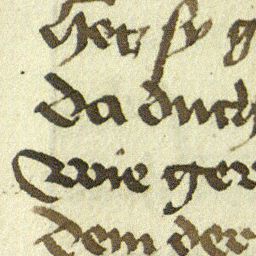 her sy g
da duch
wie ger
dem der